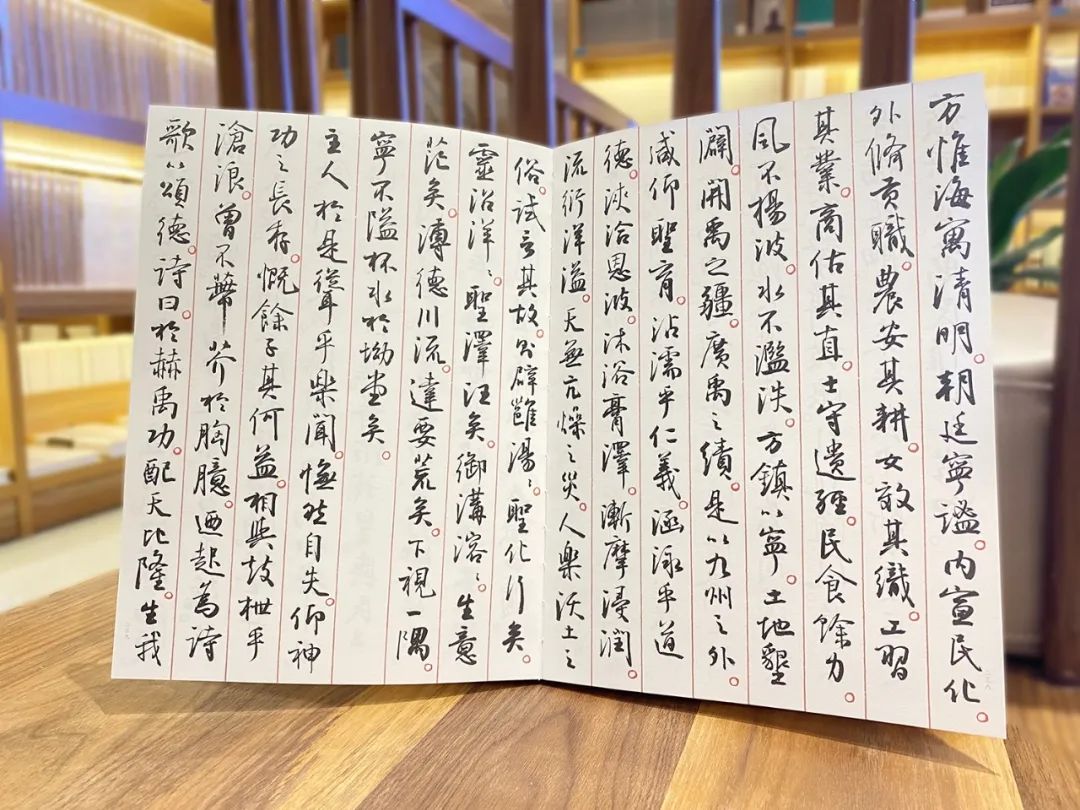 方惟海寓清明。朝廷寧謐。内宣民化。
外脩貢職。農安其耕。女效其織。工習
其業。商估其直。士守遗經。民食餘力。
風不揚波。水不濫泆。方鎮以寧。土地墾
闢。開禹之疆。廣禹之績。是以九州之外
咸仰聖育。沾濡乎仁義。涵泳乎道
德。浹洽恩波。沐浴膏澤。漸摩浸潤。
流衍洋溢。天無亢燥之災。人樂沃土之
俗。試言其故。則辟雝湯ミ。聖化行矣。
靈沼洋ミ。聖澤汪矣。御溝溶ミ。生意
茫矣。漙德川流。達要荒矣。下視一隅。
寧不隘杯水於坳堂矣。
主人於是聳乎樂聞。憮然自失。仰神
功之長存。慨餘子其何益。相與鼓枻乎
滄浪。曾不蔕芥於胸臆。迺起為詩
歌以頌德。詩曰於赫禹功。配天比隆。生我